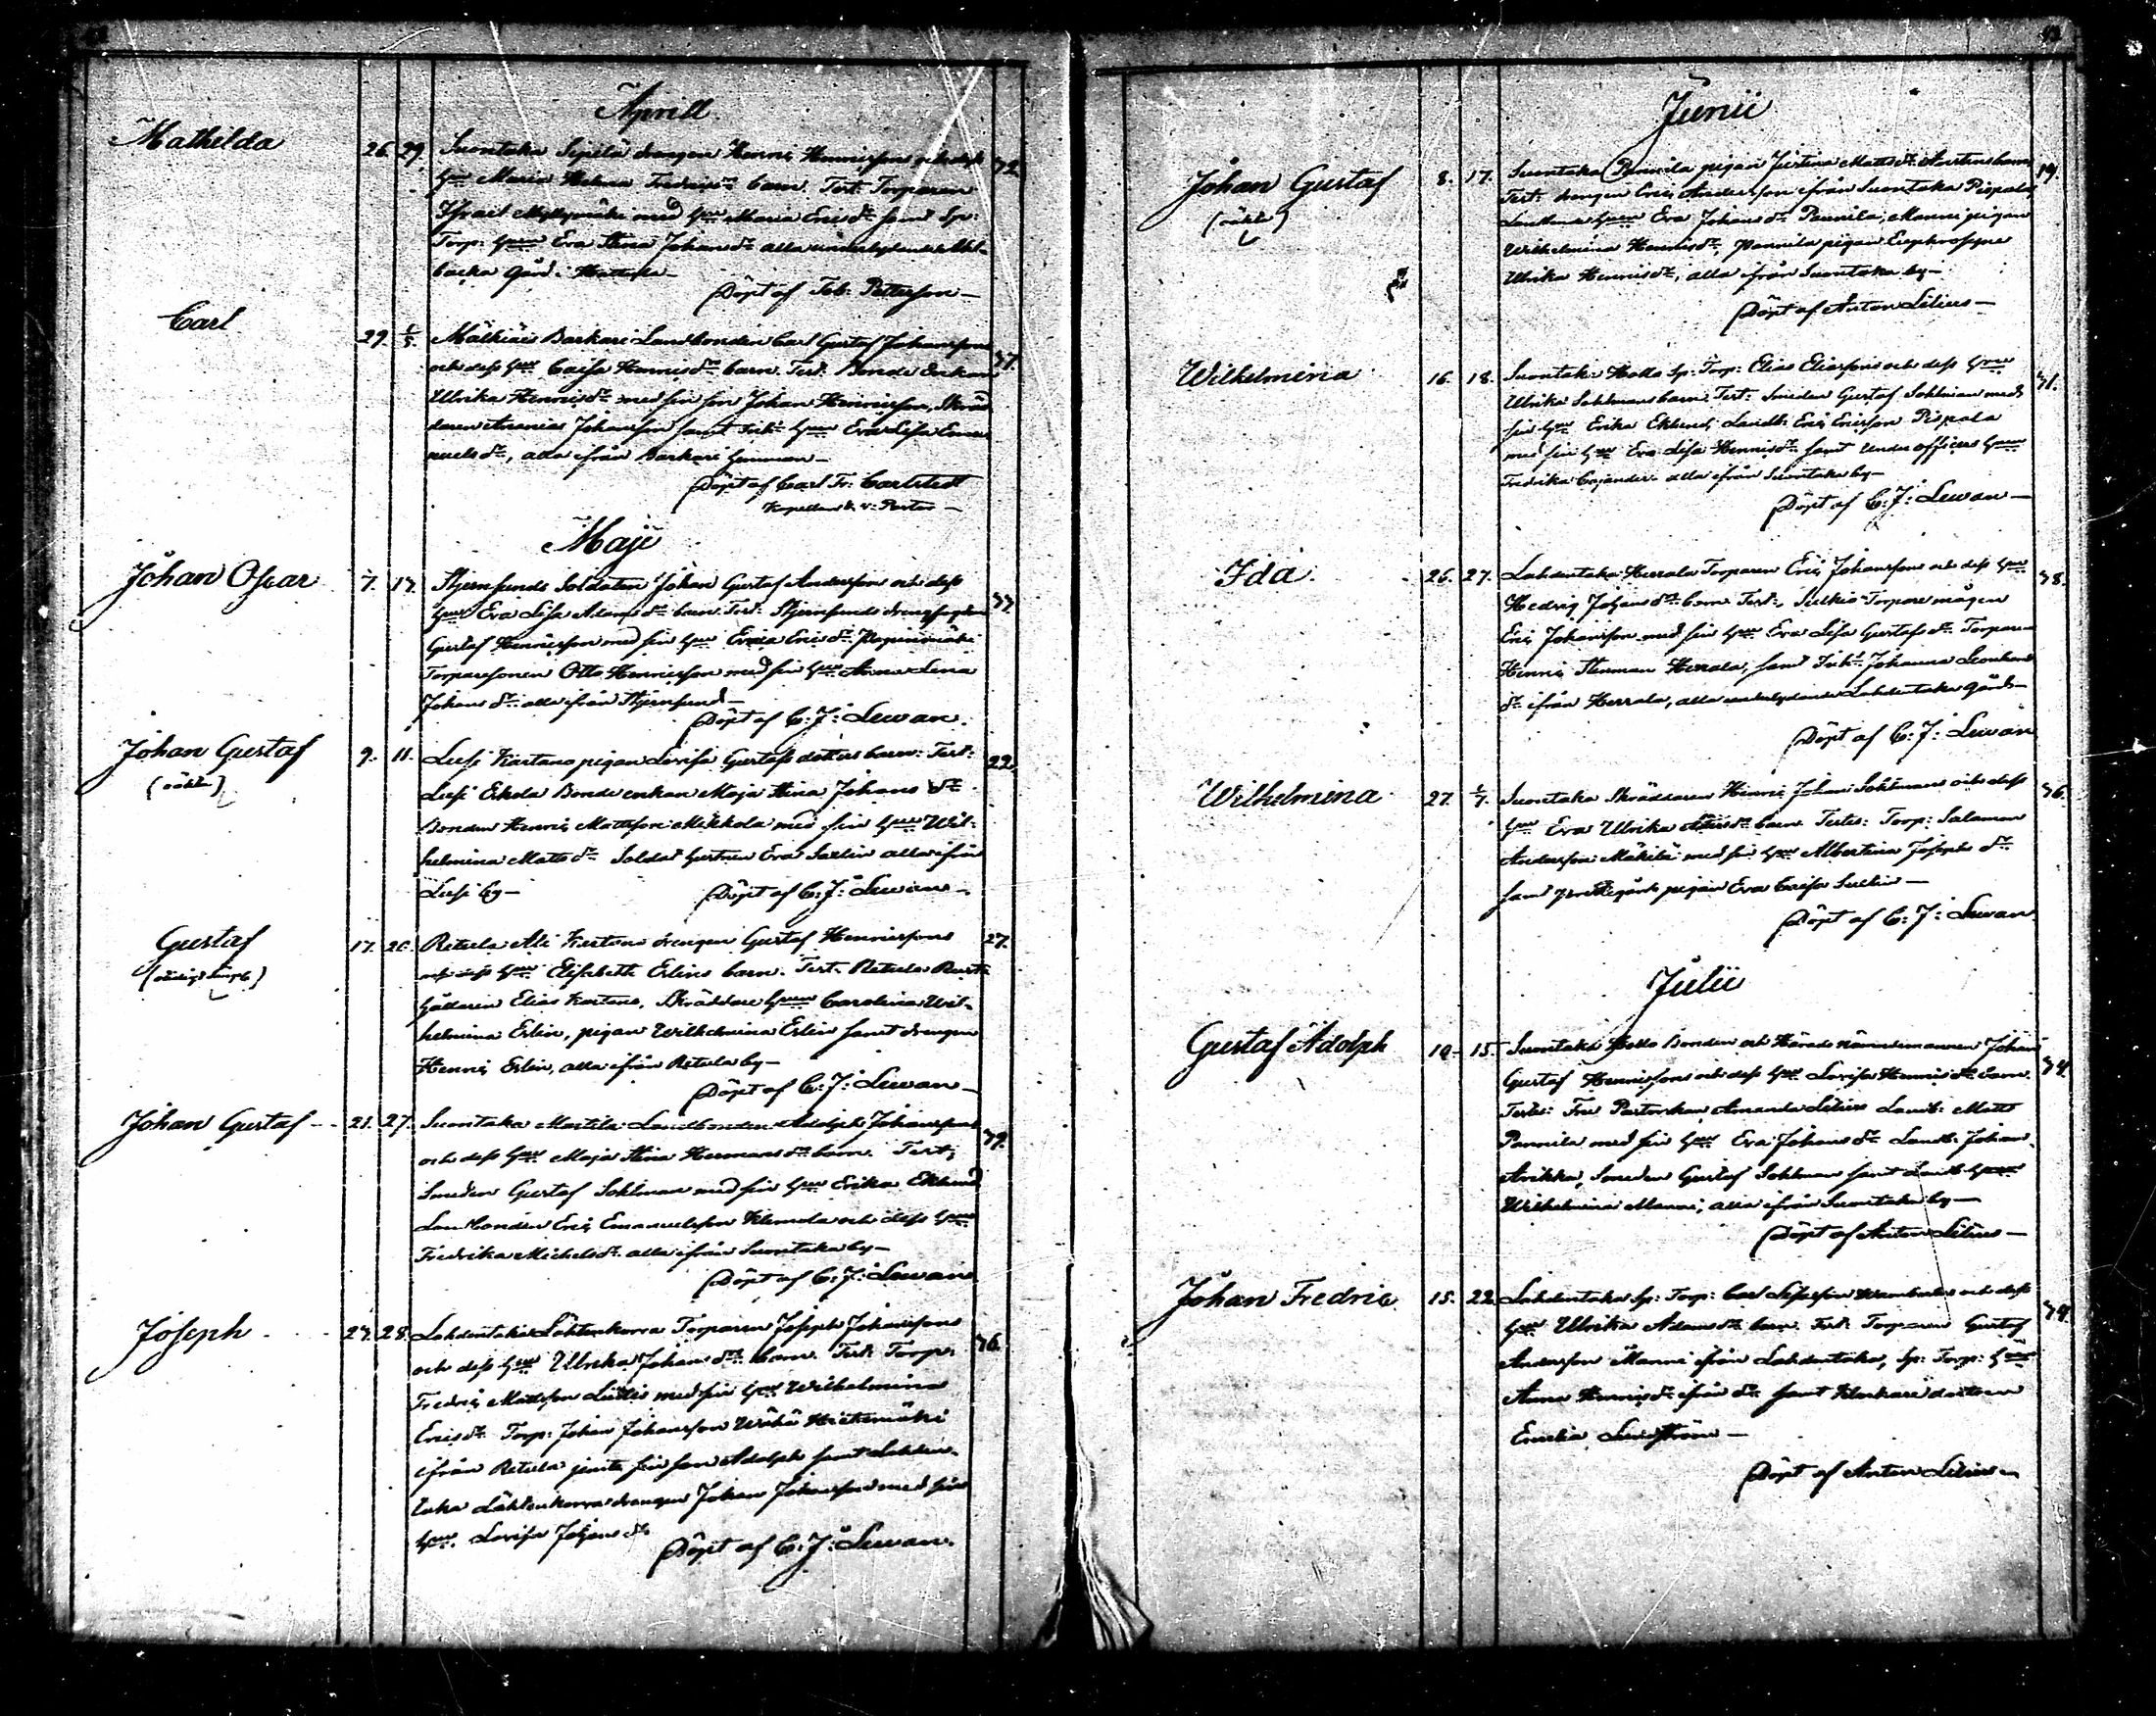 Aprill
Mathilda 26. 29. Suontaka Sepelä drengen Henric Henricssons och dess 32
hu Maria Helena Fredricsdr barn. Test: Torparen
Israel Myllymäki med hu Maria Ericsdr samt Sp:
Torp: hu Eva Stina Johansdr alla
backa gård. Hattula
Döpt af Tob. Pettersson
Carl 29. 1/5. Mälkiäis Barkari Landbonden Carl Gustaf Johanssons 37.
och dess hu Caisa Henricsdr barn. Test: Bonde Enkan
Ulrika Henricsdr med sin son Johan Henricsson, Skräd
daren Ananias Johansson samt Inh: hu Eva Lisa Ema
nuelsdr, alla ifrån Barkari hemman
Döpt af Carl Fr: Carlstedt
Kapellan & v: Pastor
Maji
Johan Oscar 7. 17. Stjernsunds Soldaten Johan Gustaf Anderssons och dess 33
hu Eva Lisa Adamsdr barn. Test: Stjernsunds drengfogden
Gustaf Henricsson med sin hu Erica Ericsdr
Torparesonen Otto Henricsson med sin hu Anna Lena
Johansdr alla ifrån Stjernsund
Döpt af C: J: Lewan.
Johan Gustaf 9. 11. Leiji Kartano pigan Lovisa Gustafs dotters barn. Test: 22.
(oäkta)
Erkola Bonde enkan Maja Stina Johans dr
Bonden Henric Mattsson Mikkola med sin hu Wil-
helmina Matts dr Soldat hustrun Eva Saxlin alla ifrån
by Döpt af C: J: Lewan
Gustaf 17. 20. Retula Ali Kartano drengen Gustaf Henricssons 27.
och dess hu Elisabeth Erlins barn. Test. Retula Rust-
hållaren Elias Kartano, Skräddare hu Carolina Wil-
helmina Erlin, pigan Wilhelmina Erlin samt drengen
Henric Erlin, alla ifrån Retula by
Döpt af C: J: Lewan
Johan Gustaf 21. 27. Suontaka Martila Landbonden Adolph Johanssons 39.
och dess hu Maja Stina Hermansdr barn. Test:
Smeden Gustaf Sohlman med sin hu Erika Eklund
Landbonden Eric Emanuelsson Klemola och dess hu
Fredrika Michelsdr alla ifrån Suontaka by
Döpt af C: J: Lewan
Joseph 27. 28. Lahdentaka Lähtenkorva Torparen Joseph Johanssons 36.
och dess hu Ulrika Johansdr barn. Test: Torp:
Fredric Mattsson med sin hu Wilhelmina
Ericsdr Torp: Johan Johansson Wähä Hietamäki
ifrån Retula jemte sin son Adolph samt Lahden-
taka Lähtenkorva drengen Johan Johansson med sin
hu Lovisa Johansdr
Döpt af C: J: Lewan.
Junii
Johan Gustaf 8. 17. Suontaka Pannila pigan Justina Mattsdr barn 19.
(oäkta)
Test: drengen Eric Andersson ifrån Suontaka Pispala
hu Eva Johansdr Pannila, Manni pigan
Wilhelmina Henricsdr, Pannila pigan Euphrosyne
Ulrika Henricsdr, alla ifrån Suontaka by
Döpt af Anton Lilius
Wilhelmina 16. 18. Suontaka Hollo Sp: Torp: Elias Eliassons och dess hu 31.
Ulrika Sohlmans barn. Test: Smeden Gustaf Sohlman med
sin hu Erika Eklund, Landb: Eric Ericsson Pispala
med sin hu Eva Lisa Henricsdr samt Underofficers hu
Fredrika Cajander alla ifrån Suontaka by
Döpt af C: J: Lewan
Ida 26. 27. Lahdentaka Herrala Torparen Eric Johanssons och dess hu 38.
Hedvig Johansdr barn. Test: Torpare mågen
Eric Johansson med sin hu Eva Lisa Gustafsdr Torparen
Henric Herrala, samt Inh: Johanna Leonhards
dr ifrån Herrala, alla underlydande Lahdentaka gård
Döpt af C: J: Lewan
Wilhelmina 27. 1/7. Suontaka Skräddaren Henric Johan Sohlmans och dess 36.
hu Eva Ulrika barn. Testes: Torp: Salomon
Andersson Mäkilä med sin hu Albertina Josephs dr
samt Prestegårds pigan Eva Caisa
Döpt af C: J: Lewan
Julii
Gustaf Adolph 10. 15. Suontaka Hollo Bonden och Härads nämndemannen Johan 34.
Gustaf Henricssons och dess hu Lovisa Henricsdr barn.
Testes: Fru Pastorskan Amanda Lilius Landb: Matts
Pannila med sin hu Eva Johansdr Landb: Johan
Arikka, Smeden Gustaf Sohlman samt Landb: hu
Wilhelmina Manni, alla ifrån Suontaka by
Döpt af Anton Lilius
Johan Fredric 15. 22. Lahdentaka Sp: Torp: Carl och dess 34.
hu Ulrika Adamsdr barn. Test: Torparen Gustaf
Andersson Manni ifrån Lahdentaka, Sp: Torp: hu
Anna Henricsdr ifrån do samt Klockare dottren
Emilia Lindström
Döpt af Anton Lilius